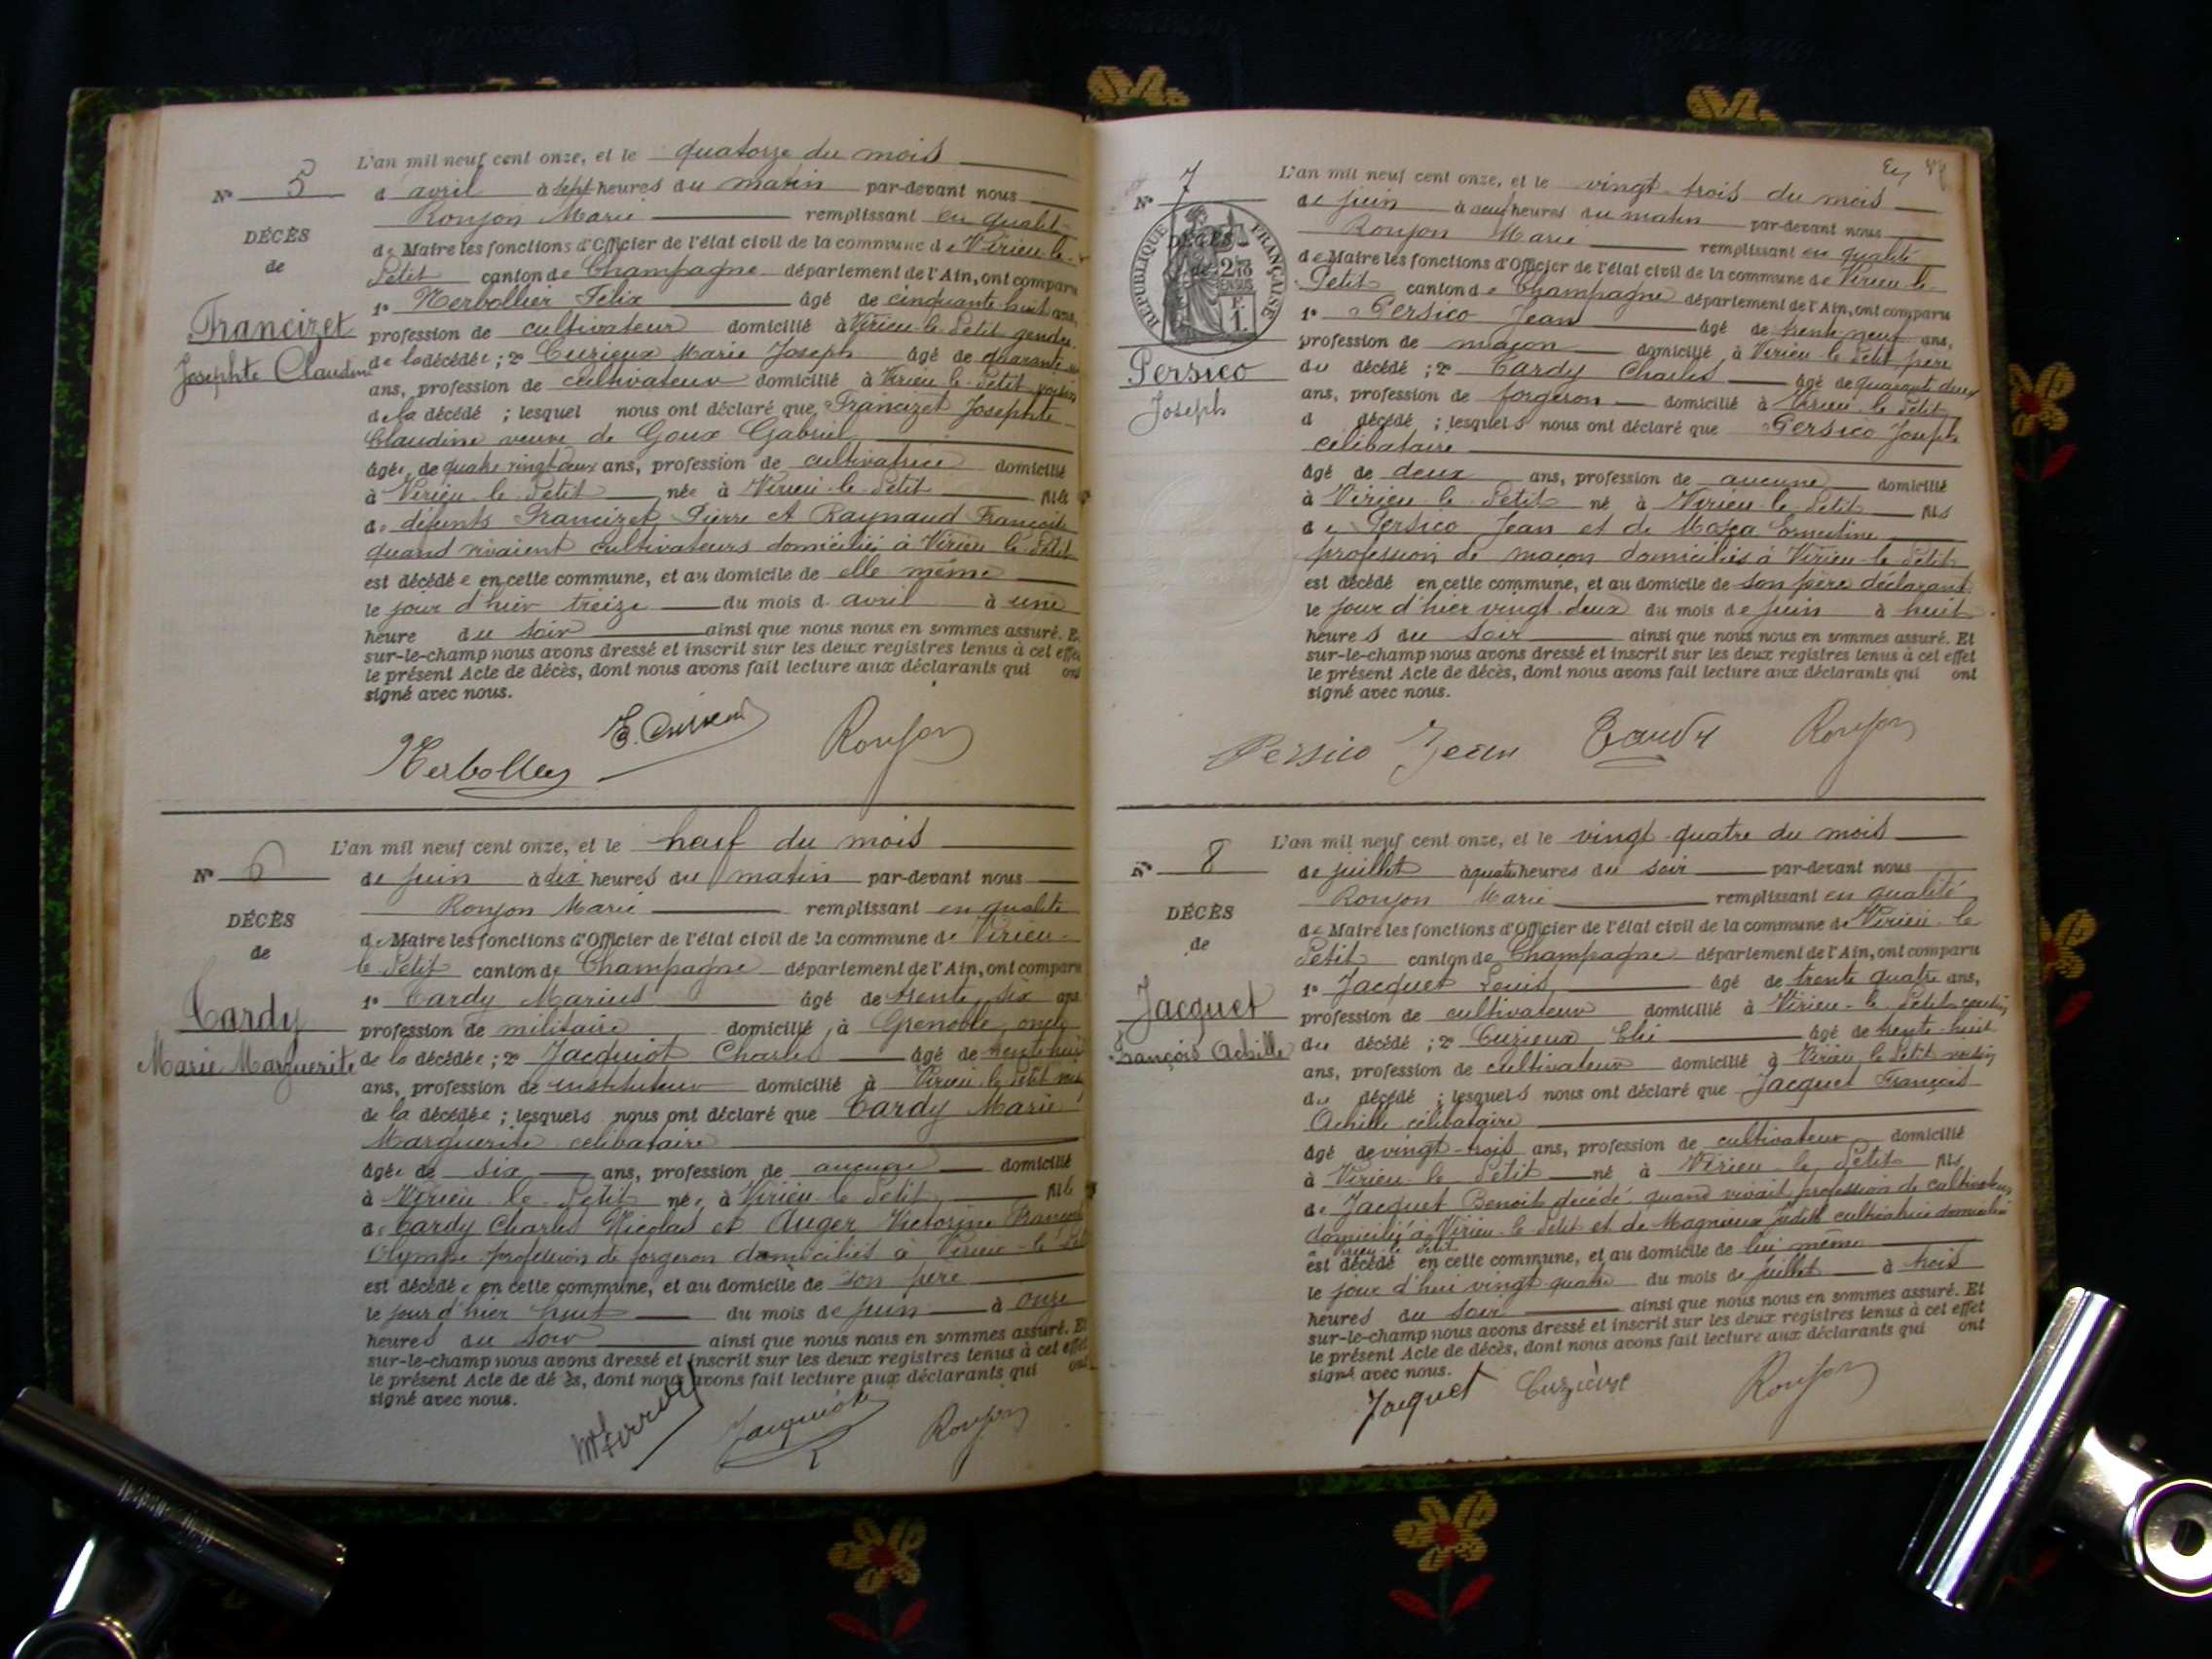 L'an mil neuf cent onze, et le quatorze du mois
N° 5
d avril à sept heures du matin par-devant nous
Roujon Marie remplissant en qualité
DÉCÈS
de Maire les fonctions d'Officier de l'état civil de la commune de Virieu-le-
de
Petit canton de Champagne département de l'Ain, ont comparu
1° Nerbollier Félix âgé de cinquante huit ans,
Francizet
profession de cultivateur domicilié à Virieu-le-Petit gendre
Josephte Claudine
de la décédée ; 2° Cuzieux Marie Joseph âgé de quarante
ans, profession de cultivateur domicilié à Virieu-le-Petit voisin
de la décédé ; lesquel nous ont déclaré que Francizet Josephte
Claudine veuve de Goux Gabriel
âgée de quatre vingt deux ans, profession de cultivatrice domicilié
à Virieu-le-Petit née à Virieu-le-Petit fille
de défunts Francizet Pierre et Raynaud Françoise
quand vivaient cultivateurs domiciliés à Virieu-le-Petit
est décédée en cette commune, et au domicile de elle même
le jour d'hier treize du mois d avril à une
heure du soir ainsi que nous nous en sommes assuré. Et
sur-le-champ nous avons dressé et inscrit sur les deux registres tenus à cet effet
le présent Acte de décès, dont nous avons fait lecture aux déclarants qui ont
signé avec nous.
Roujon
L'an mil neuf cent onze, et le neuf du mois
N° 6
de juin à dix heures du matin par-devant nous
Roujon Marie remplissant en qualité
DÉCÈS
de Maire les fonctions d'Officier de l'état civil de la commune de Virieu-
de
le Petit canton de Champagne département de l'Ain, ont comparu
1° Tardy Marius âgé de trente six ans
Tardy
profession de militaire domicilié à Grenoble oncle
Marie Marguerite
de la décédée ; 2° Jacquiot Charles âgé de trente huit
ans, profession de instituteur domicilié à Virieu-le-Petit
de la décédée ; lesquels nous ont déclaré que Tardy Marie
Marguerite célibataire
âgée de six ans, profession de aucune domicilié
à Virieu-le-Petit née à Virieu-le-Petit fille
de Tardy Charles Nicolas et Auger Victorine
Olympe profession de forgeron domiciliés à Virieu-le-Petit
est décédée en cette commune, et au domicile de son père
le jour d'hier huit du mois de juin à onze
heures du soir ainsi que nous nous en sommes assuré. Et
sur-le-champ nous avons dressé et inscrit sur les deux registres tenus à cet effet
le présent Acte de dé ès, dont nous avons fait lecture aux déclarants qui ont
signé avec nous.
Jacquiot Roujon
L'an mil neuf cent onze, et le vingt-trois du mois
N° 7
de juin à neuf heures du matin par-devant nous
Roujon Marie remplissant en qualité
RÉPUBLIQUE FRANÇAISE
DÉCÈS
de Maire les fonctions d'Officier de l'état civil de la commune de Virieu-le-
Petit canton de Champagne département de l'Ain, ont comparu
1° Persico Jean âgé de trente neuf ans,
profession de maçon domicilié à Virieu-le-Petit père
Persico
du décédé ; 2° Tardy Charles âgé de quarante deux
Joseph
ans, profession de forgeron domicilié à Virieu-le-Petit
d décédé ; lesquels nous ont déclaré que Persico Joseph
célibataire
âgé de deux ans, profession de aucune domicilié
à Virieu-le-Petit né à Virieu-le-Petit fils
de Persico Jean et de Ernestine
profession de maçon domiciliés à Virieu-le-Petit
est décédé en cette commune, et au domicile de son père déclarant
le jour d'hier vingt-deux du mois de juin à huit
heures du soir ainsi que nous nous en sommes assuré. Et
sur-le-champ nous avons dressé et inscrit sur les deux registres tenus à cet effet
le présent Acte de décès, dont nous avons fait lecture aux déclarants qui ont
signé avec nous.
Persico Jean Tardy Roujon
L'an mil neuf cent onze, et le vingt-quatre du mois
N° 8
de juillet à quatre heures du soir par-devant nous
Roujon Marie remplissant en qualité
DÉCÈS
de Maire les fonctions d'Officier de l'état civil de la commune de Virieu-le
de
Petit canton de Champagne département de l'Ain, ont comparu
1° Jacquet Louis âgé de trente quatre ans,
Jacquet
profession de cultivateur domicilié à Virieu-le-Petit cousin
François Achille
du décédé ; 2° Cuzieux Elie âgé de trente-huit
ans, profession de cultivateur domicilié à Virieu-le-Petit voisin
du décédé ; lesquels nous ont déclaré que Jacquet François
Achille célibataire
âgé de vingt-trois ans, profession de cultivateur domicilié
à Virieu-le-Petit né à Virieu-le-Petit fils
de Jacquet Benoit décédé quand vivait profession de cultivateur
domicilié à Virieu-le-Petit et de Magnieux Judith cultivatrice domiciliée
à Virieu-le-Petit
est décédé en cette commune, et au domicile de lui même
le jour d'hui vingt-quatre du mois de juillet à trois
heures du soir ainsi que nous nous en sommes assuré. Et
sur-le-champ nous avons dressé et inscrit sur les deux registres tenus à cet effet
le présent Acte de décès, dont nous avons fait lecture aux déclarants qui ont
signé avec nous.
Jacquet Cuzieux Roujon